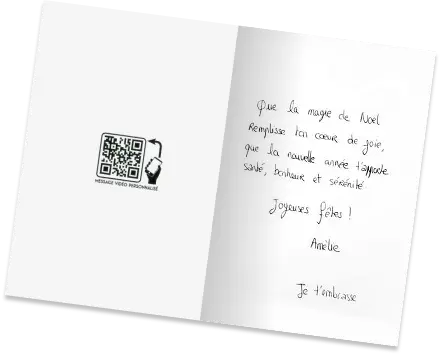 MESSAGE VIDÉO PERSONNALISÉ
Que la magie de Noël
Remplisse ton cœur de joie,
que la nouvelle année t'apporte
santé, bonheur et sérénité
Joyeuses fêtes !
Amélie
Je t'embrasse